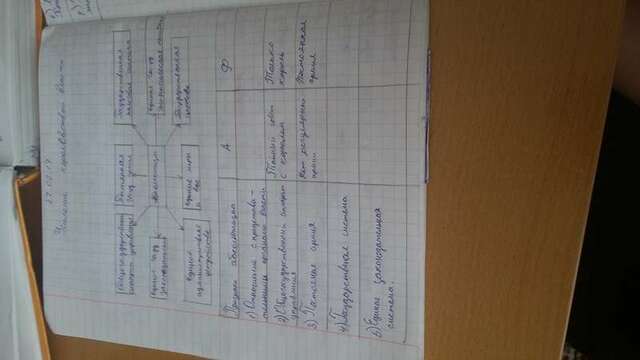 27.02.17
Усиление королевской власти
Общегосударственный
аппарат управления
Постоянная
Государственная
налоговая система
единое гос-ое
законодательство
абсолютизм
единая гос-ая
экономическая
единое
административное
устройство
единые меры
и вес
Государственная
Признаки абсолютизма
А
Ф
1) Отношение с представи-
тельными органами власти
2) Общегосударственный аппарат
управления
Тайный совет
с королём
Только
король
3) Постоянная армия
Нет регулярной
армии
Постоянная
армия
4) Государственная система
5) Единая законодательная
система.